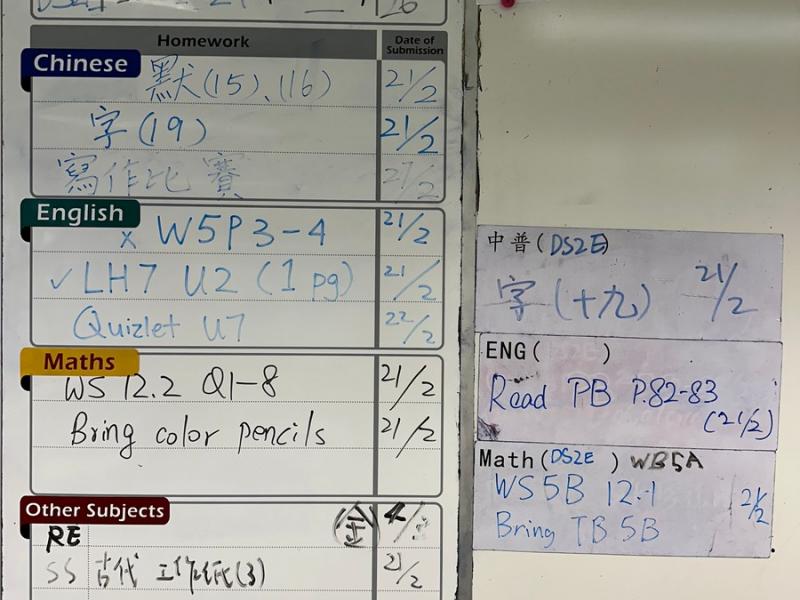 Homework Date of Submission
Chinese
默(15)、(16) 21/2
字(19) 21/2
寫作比賽 27/2
English
x W5P3-4 21/2
✓LH7 U2 (1 pg) 21/2
Quizlet U7 22/2
Maths
WS 12.2 Q1-8 21/2
Bring color pencils 21/2
Other Subjects
RE
SS 古代 工作紙(3) 21/2
中普(DS2E)
字(十九) 21/2
ENG( )
Read PB P.82-83
(21/2)
Math(DS2E) WB5A
WS 5B 12.1 21/2
Bring TB 5B